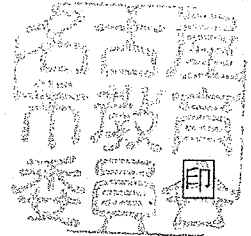 名古屋
市教育
委員会
印